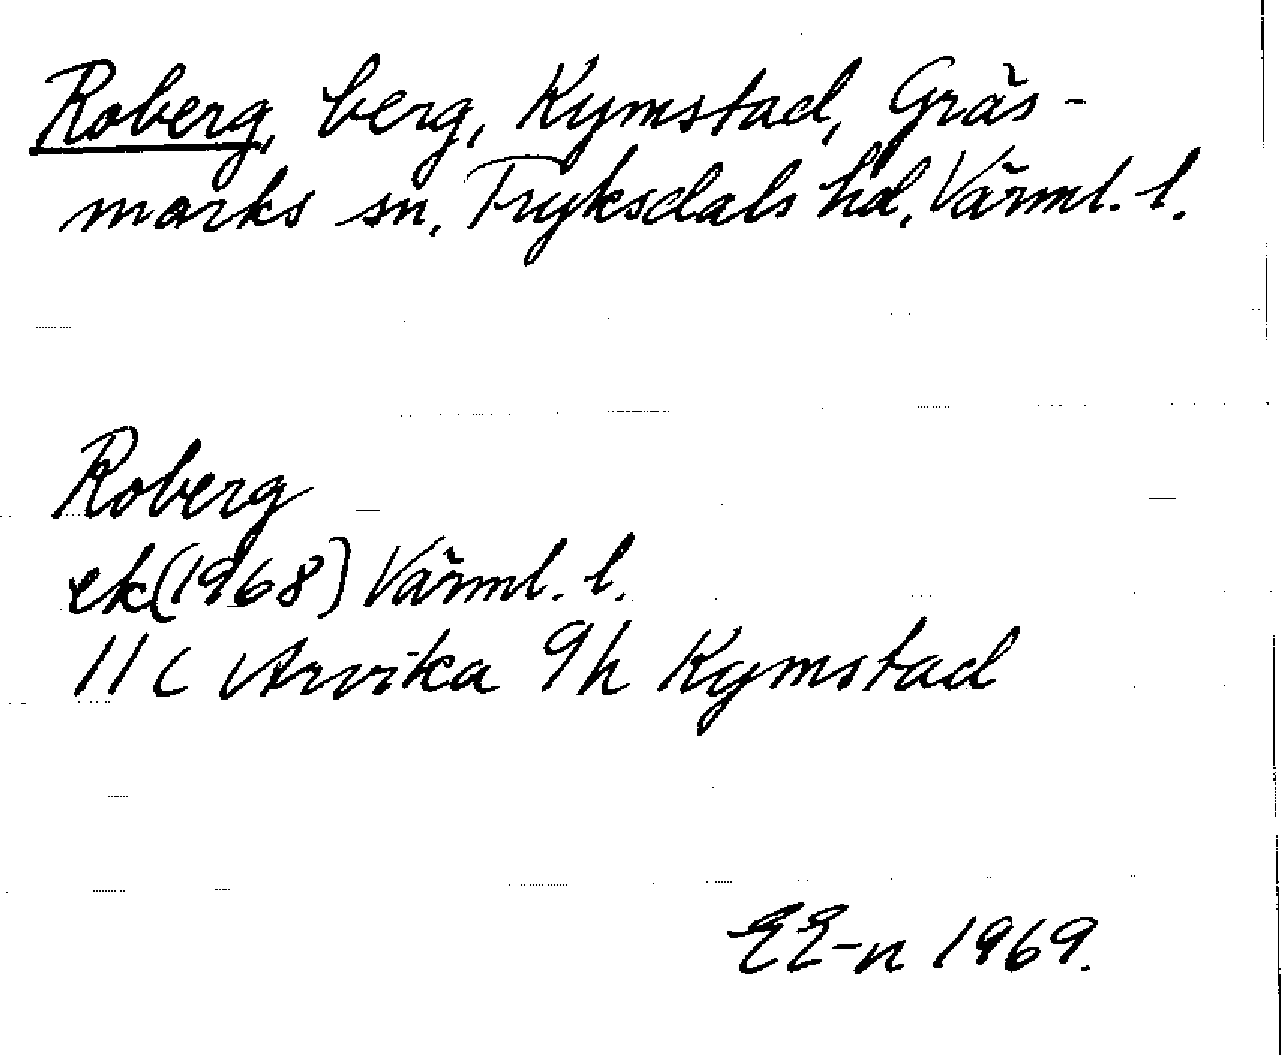 Roberg, berg, Kymstad, Gräs-
marks sn, Fryksdals hd, Värml. l.
Roberg
ek (1968) Värml. l.
11 C Arvika 9h Kymstad
EE-n 1969.